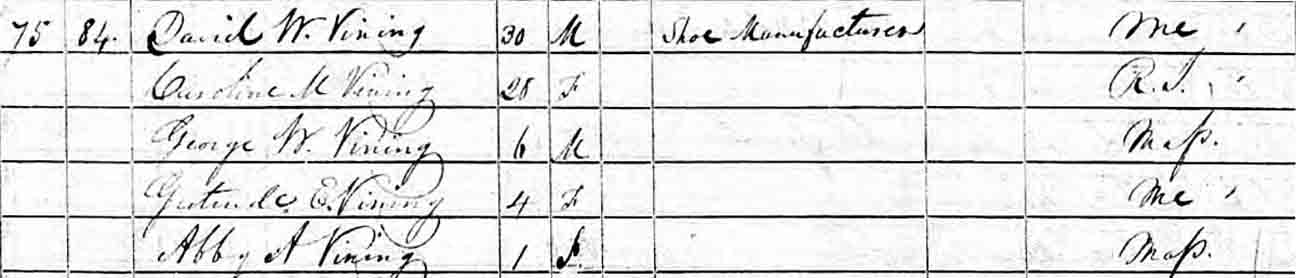 75 84. David W. Vining 30 M Shoe Manufacturer Me
Caroline M Vining 28 F R.I.
George W. Vining 6 M Mass.
Gertrude E. Vining 4 F Me
Abby A Vining 1 F. Mass.